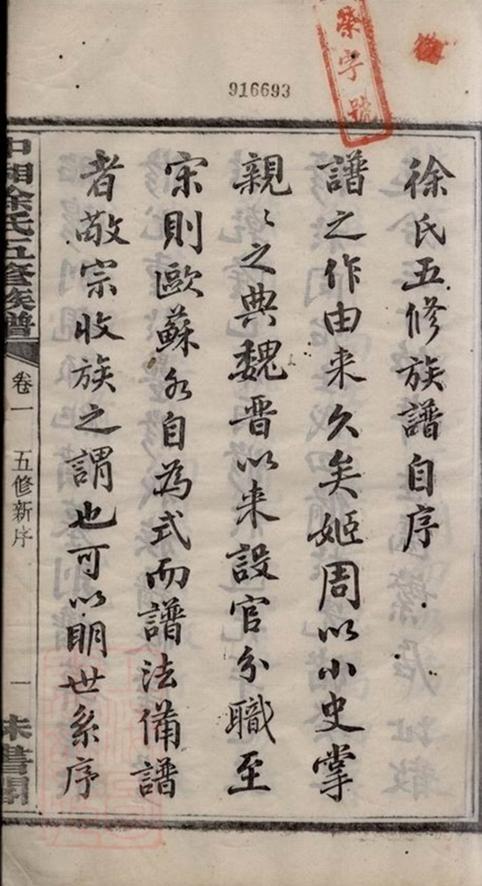 916693
徐氏五修族譜自序
譜之作由来久矣姬周以小史掌
親〻之典魏晋以来設官分職至
宋則歐蘇各自為式而譜法備譜
者敬宗收族之謂也可以明世系序
中湘徐氏五修族譜
卷一
五修新序
一
字號